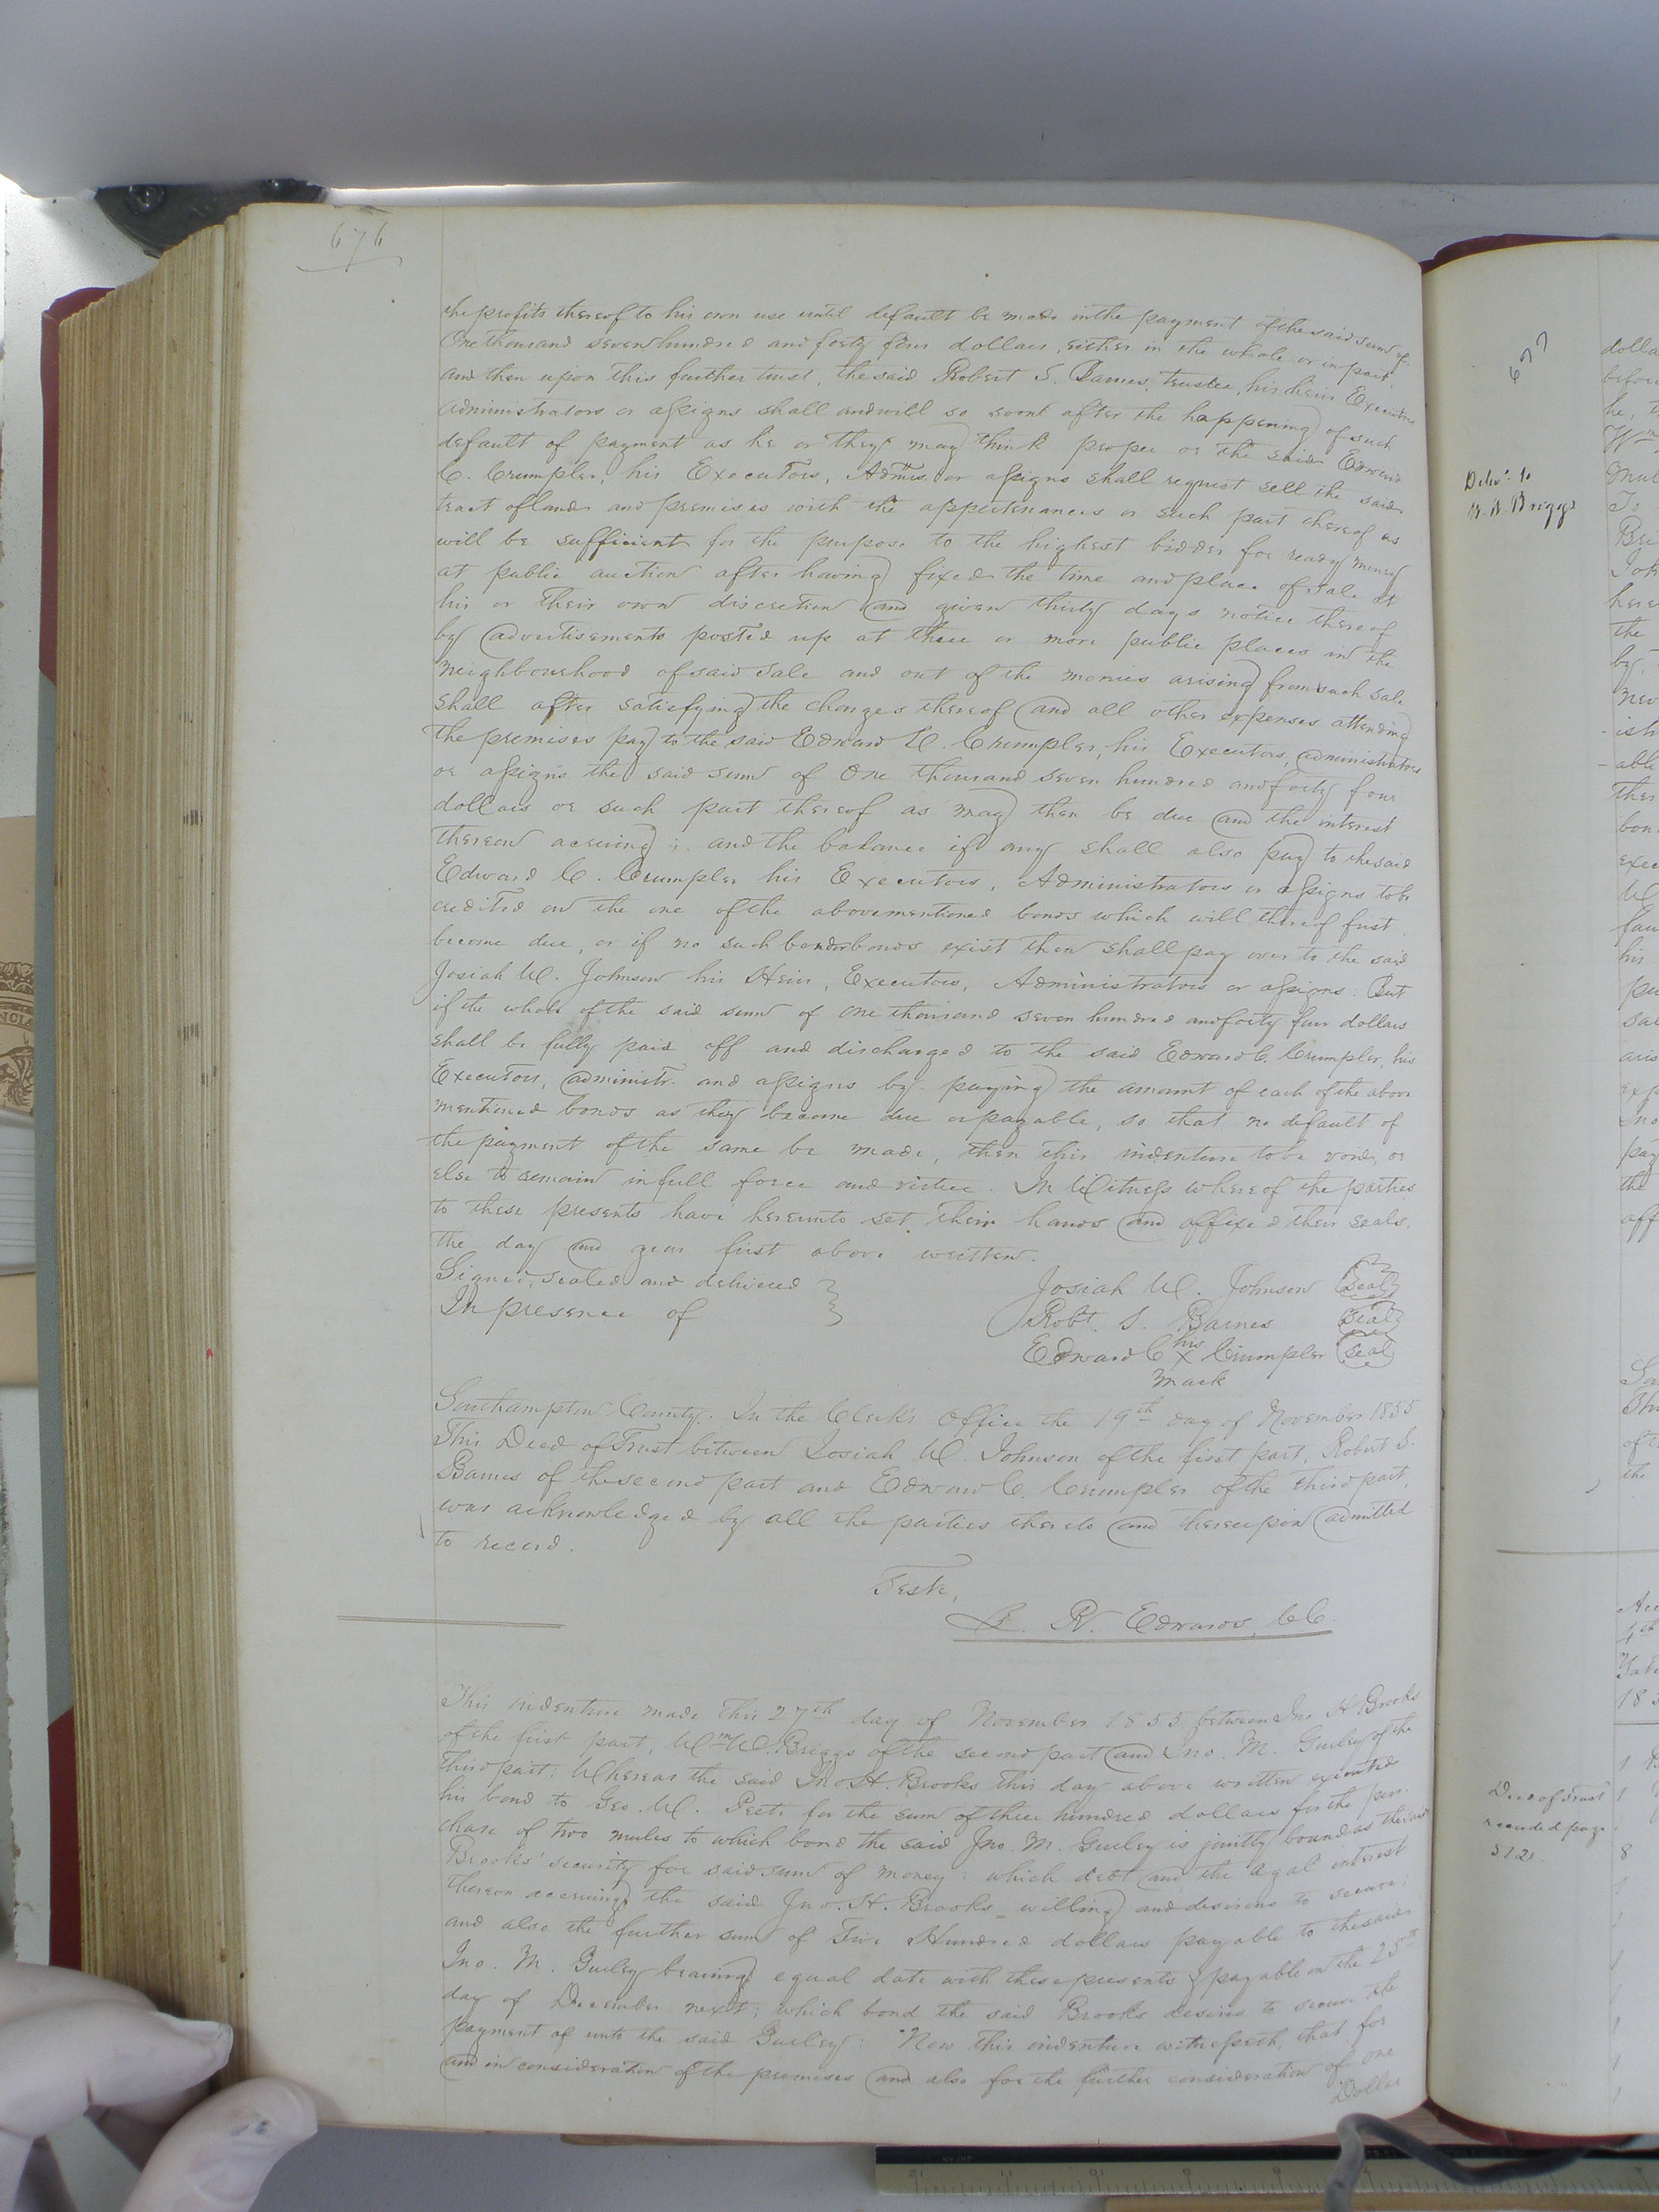 676
the profits thereof to his own use until default be made in the payment of the said sum of
One thousand seven hundred and forty four dollars, either in the whole or in part,
and then upon this further trust, the said Robert S. Barnes, trustee, his heirs Executors
administrators or assigns shall and will so soon after the happening of such
default of payment as he or they may think proper or the said Edward
C. Crumpler, his Executors, Admrs. or assigns shall request sell the said
tract of land and premises with the appurtenances or such part thereof as
will be sufficient for the purpose to the highest bidder for ready money
at public auction after having fixed the time and place of sale at
his or their own discretion and given thirty days notice thereof
by advertisements posted up at three or more public places in the
neighbourhood of said sale and out of the monies arising from such sale
shall after satisfying the charges thereof and all other expenses attending
the premises pay to the said Edward C. Crumpler, his Executors, administrators
or assigns the said sum of One thousand seven hundred and forty four
dollars or such part thereof as may then be due and the interest
thereon accruing; and the balance if any shall also pay to the said
Edward C. Crumpler his Executors, Administrators or assigns to be
credited on the one of the abovementioned bonds which will thereof first
become due, or if no such bond or bonds exist then shall pay over to the said
Josiah W. Johnson his Heirs, Executors, Administrators or assigns. But
if the whole of the said sum of one thousand seven hundred and forty four dollars
shall be fully paid off and discharged to the said Edward C. Crumpler, his
Executors, administr. and assigns by paying the amount of each of the above
mentioned bonds as they become due or payable, so that no default of
the payment of the same be made, then this indenture to be void, or
else to remain in full force and virtue. In Witness whereof the parties
to these presents have hereunto set their hands and affixed their seals,
the day and year first above written.
Signed, sealed and delivered }
In presence of }
Josiah W. Johnson (seal)
Robt. S. Barnes (seal)
his
Edward C X Crumpler (seal)
mark
Southampton County. In the Clerk's Office the 19th day of November 1855
This Deed of Trust between Josiah W. Johnson of the first part, Robert S.
Barnes of the second part and Edward C. Crumpler of the third part,
was acknowledged by all the parties thereto and thereupon admitted
to record.
Teste,
L. R. Edwards, CC.
This indenture made this 27th day of November 1855 between Jno H Brooks
of the first part, Wm W. Briggs of the second part and Jno. M. Gurley of the
third part: Whereas the said Jno H. Brooks this day above written executed
his bond to Geo. W. Peete for the sum of three hundred dollars for the pur
chase of two mules to which bond the said Jno. M. Gurley is jointly bound as the said
Brooks' security for said sum of money: which debt and the legal interest
thereon accruing the said Jno. H. Brooks willing and desirous to secure;
and also the further sum of Five Hundred dollars payable to the said
Jno. M. Gurley bearing equal date with these presents & payable on the 25th
day of December next; which bond the said Brooks desires to secure the
payment of unto the said Gurley: Now this indenture witnesseth, that for
and in consideration of the premises and also for the further consideration of one
Dollar
677
Delivd. to
W. W. Briggs
Deed of Trust
recorded page
512.